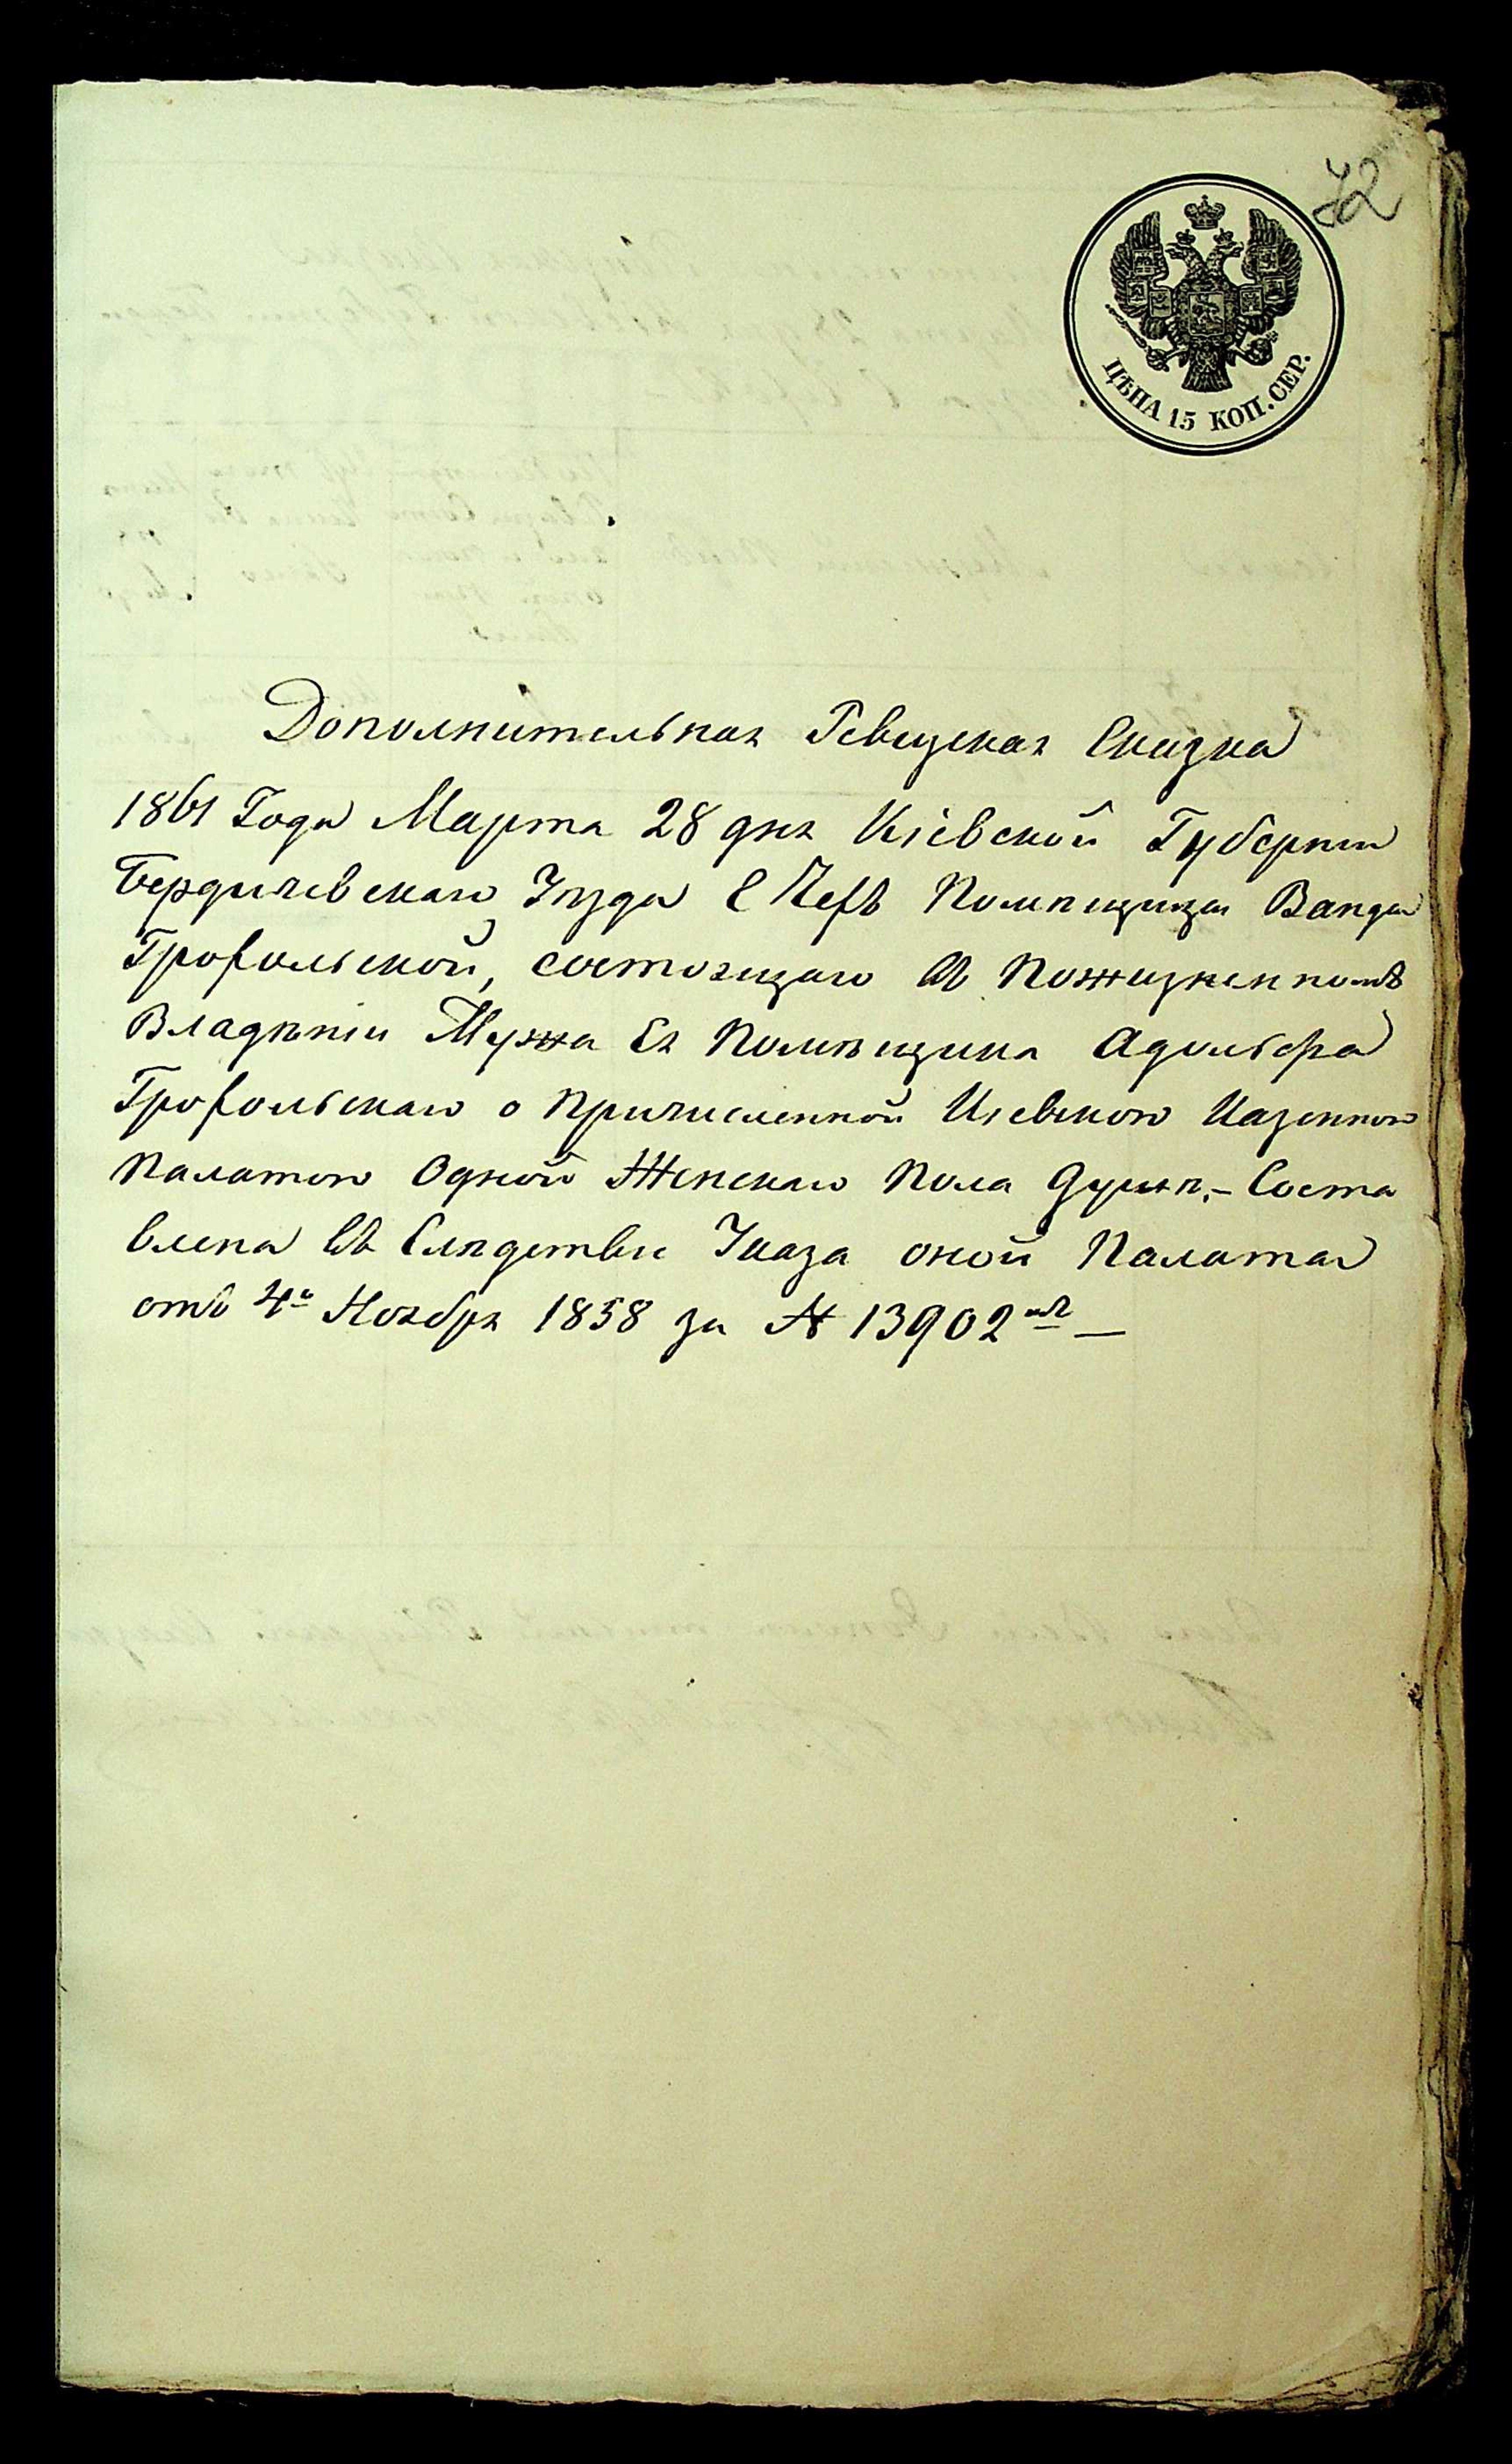 72
ЦѢНА 15 КОП. СЕР.
Дополнительная Ревизская Сказка
1861 Года Марта 28 дня Кіевской Губерніи
Бердичевскаго Уѣзда С Помѣщицы Ванды
Грохольской, состоящаго въ Пожизненномъ
Владѣніи Мужа Ея Помѣщика Адольфа
Грохольскаго о Причисленной Кіевскою Казенною
Палатою Одной Женскаго Пола Душѣ,– Соста
влена въ Слѣдствіе Указа оной Палаты
отъ 4го Ноября 1858 за № 13902мъ —